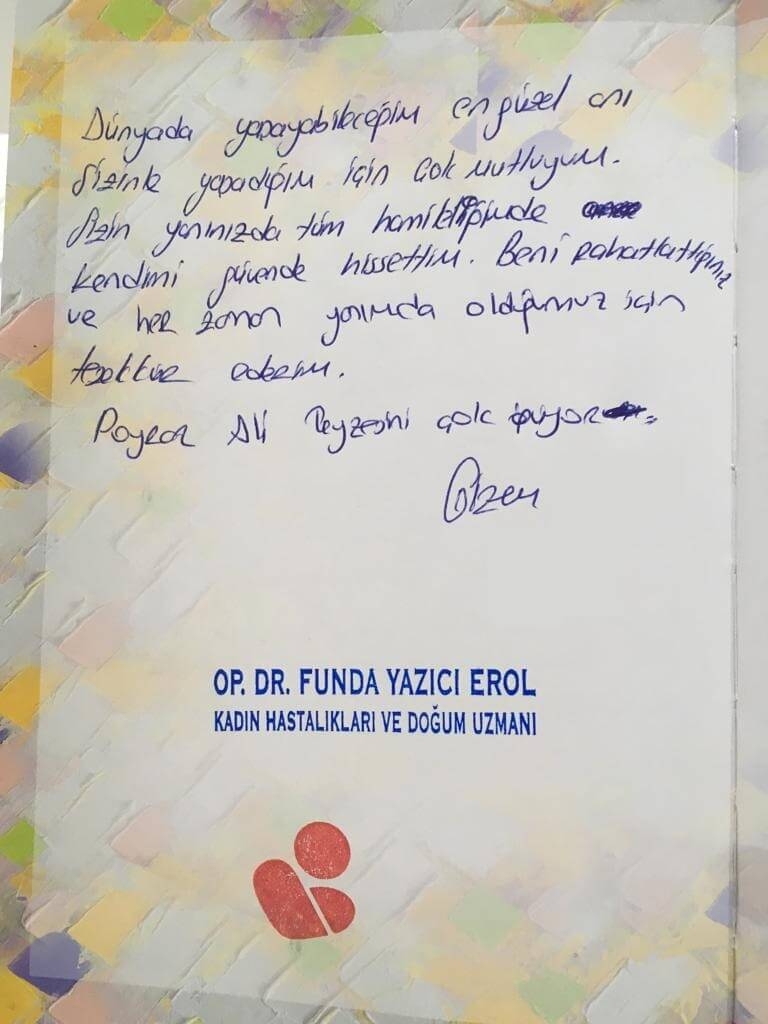 Dünyada yapayabileceğim en güzel anı
Sizinle yapadığım için çok mutluyum.
Sizin yanınızda tüm hamileliğimde
kendimi güvende hissettim. Beni rahatlattığınız
ve her zaman yanımda olduğunuz için
teşekkür ederim.
Poyraz Ali Teyzesini çok öpüyor
Gizem
OP. DR. FUNDA YAZICI EROL
KADIN HASTALIKLARI VE DOĞUM UZMANI